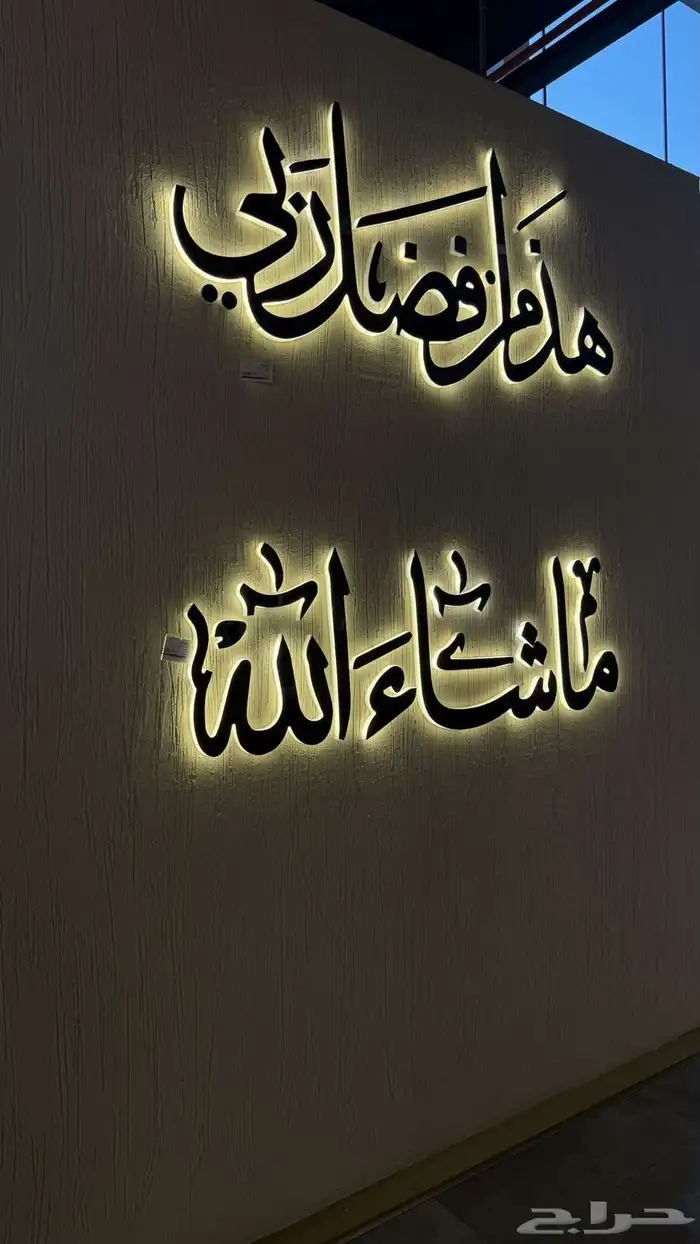 هذا من فضل ربي
ما شاء الله
حراج